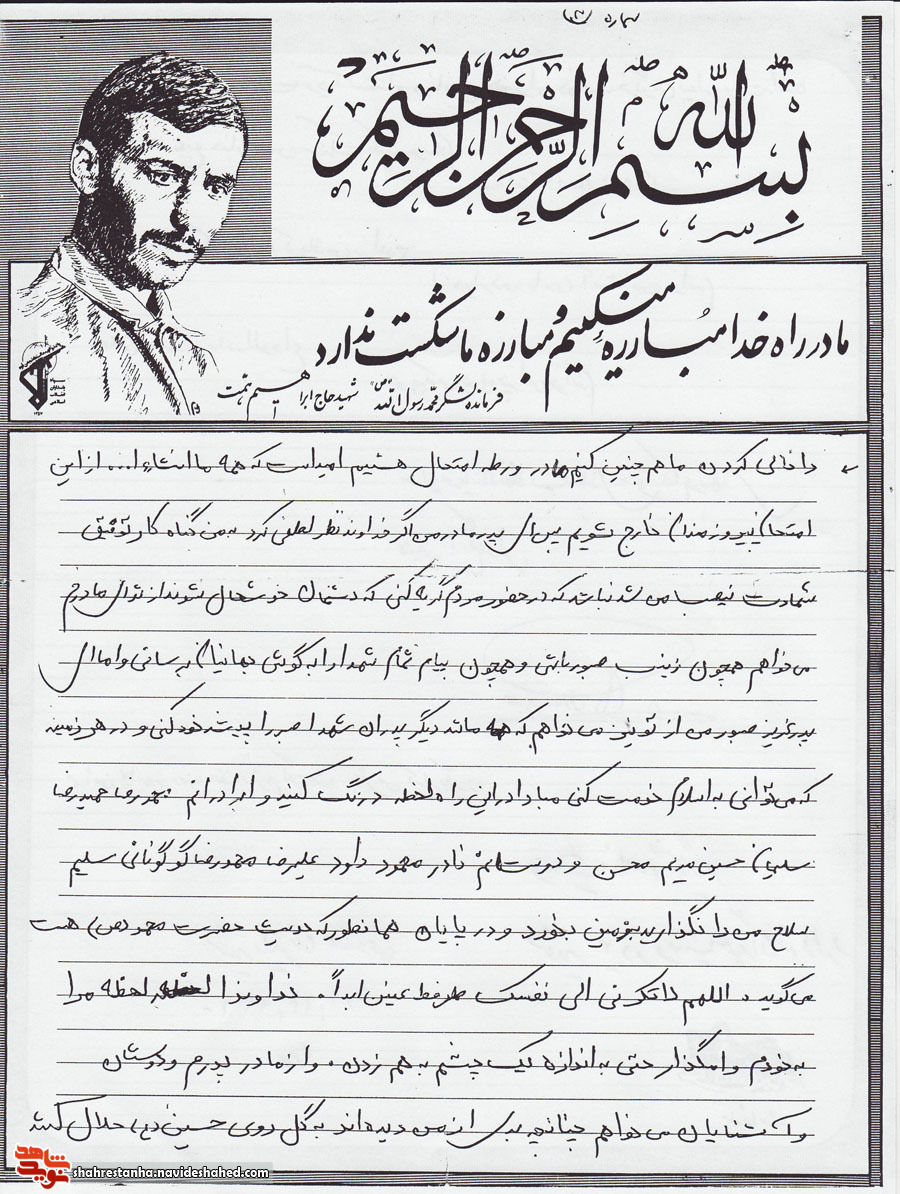 شماره (۳)
بسم الله الرحمن الرحیم
ما در راه خدا مبارزه میکنیم و مبارزه ما شکست ندارد
فرمانده لشگر محمد رسول الله "ص" شهید حاج ابراهیم همت
خالی کردن ما هم چنین کنیم ما در ورطه امتحان هستیم امید است که همه ما انشاءا... از این
امتحان پیروزمندان خارج بشویم پس ای پدر مادر من اگر خداوند نظر لطفی کرد به من گناه کار توفیق
شهادت نصیب من شد نباشد که در حضور مردم گریه کنی که دشمنان خوشحال شوند از تو ای مادرم
می خواهم همچون زینب صبور باشی و همچون پیام تمام شهدا را به گوش جهانیان برسانی و اما ای
پدر عزیز صبور من از تو نیز می خواهم که همه مانند دیگر پدران شهدا صبر را پیشه خود کنی و در هر زمینه
که می توانی به اسلام خدمت کنی مبادا در این راه لحظه درنگ کنید و برادرانم محمدرضا حمیدرضا
سلیمان حسین مریم محسن و دوستانم نادر محمود داود علیرضا محمدرضا گوگونانی سلیم
سلاح من را نگذارید بزمین بخورد و در پایان همانطور که حدیث حضرت محمد (ص) هست
می گوید. اللهم لا تکلنی الی نفسک طرفط عینی ابداً. خداوندا لحظه مرا
به خودم وامگذار حتی به اندازه یک چشم به هم زدن. و از مادر پدرم و دوستان
و آشنایان می خواهم چنانچه بدی از من دیده اند به گل روی حسین (ع) حلال کنند
شاهد
نوید
shahrestanha.navideshahed.com